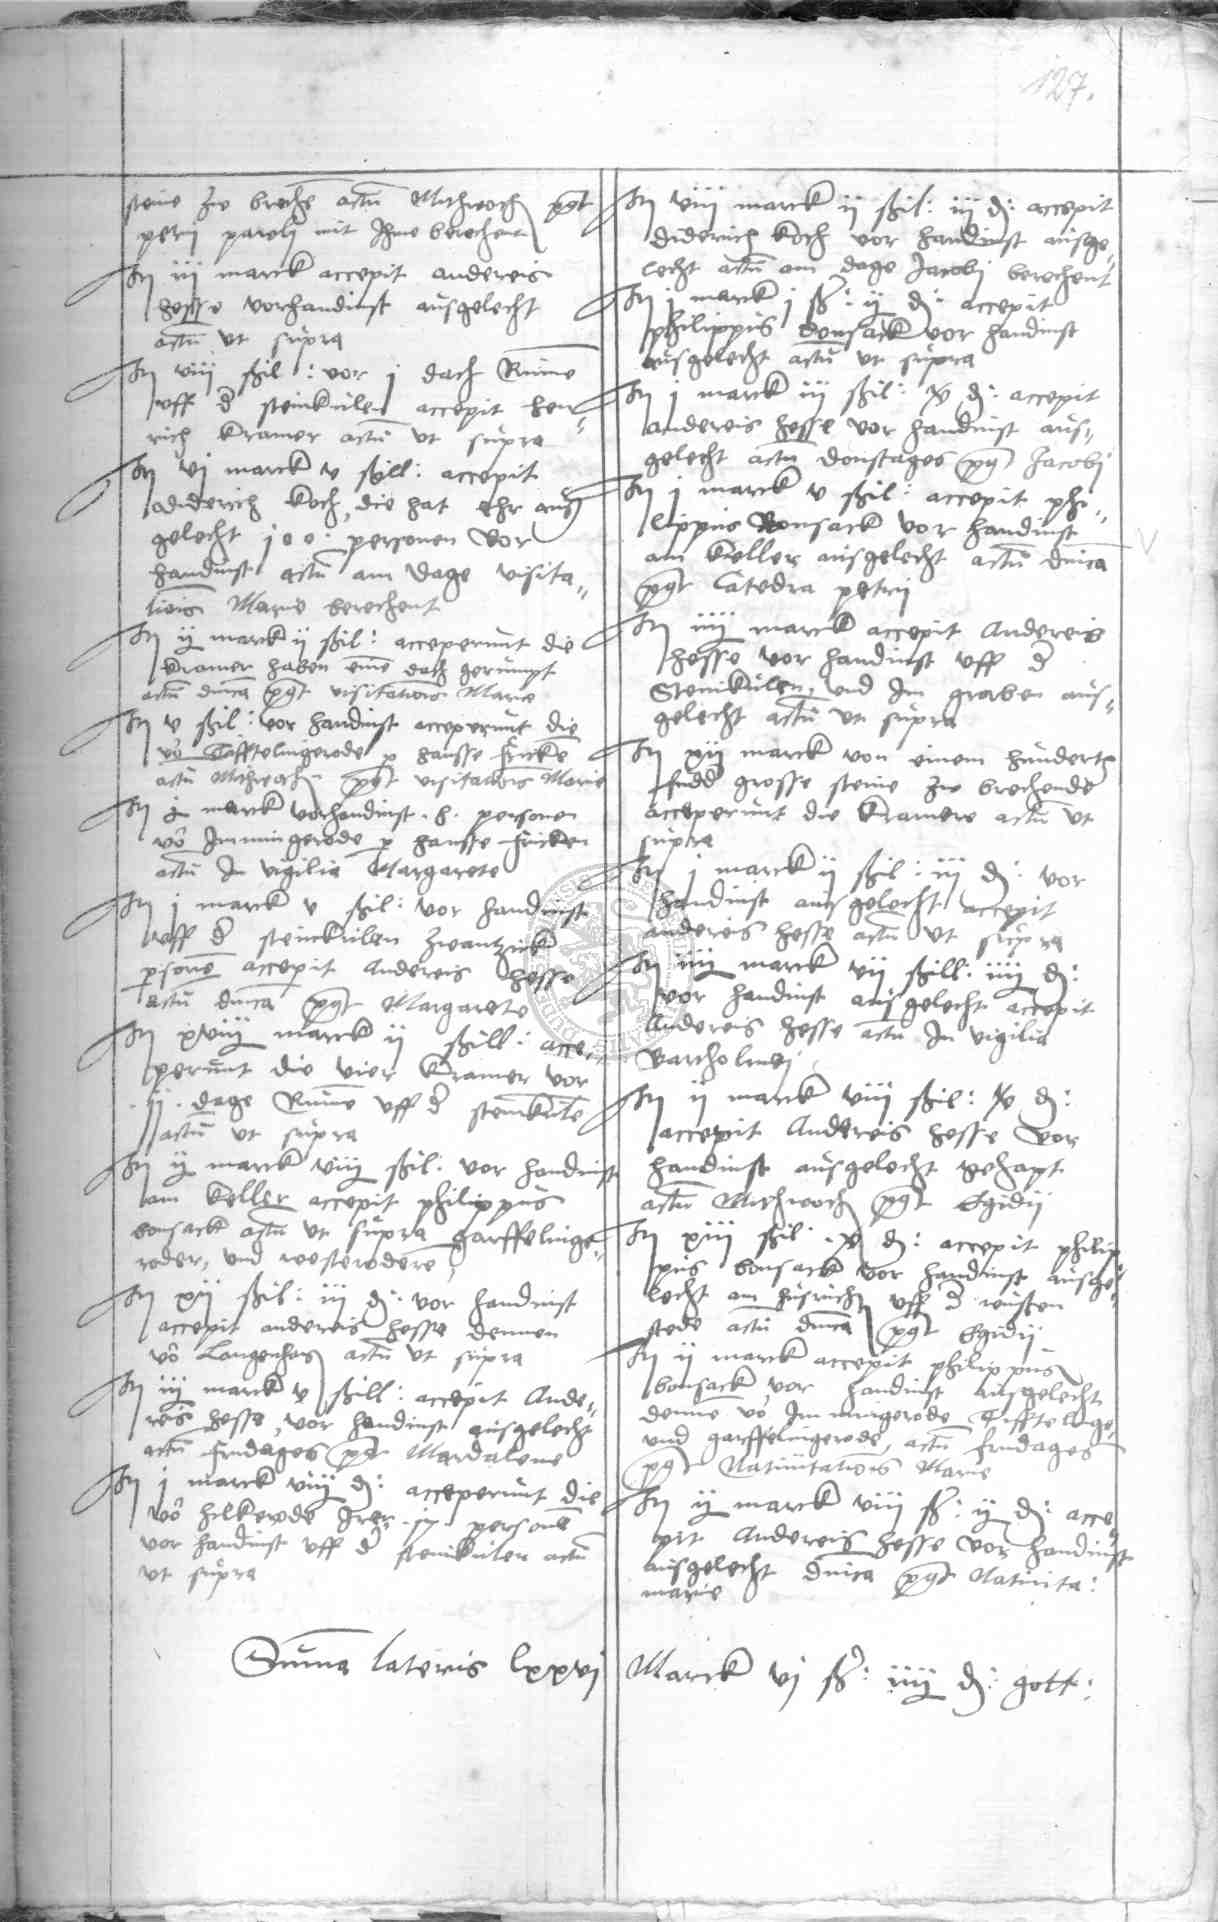 127.
steine zw breche actu Mithwoch pgt
petri pauli mit Ihme berechent
It iii marck accepit andereis
hesse vorhandinst ausgelecht
actu ut supra
It viii sßil: vor j dach Rume
uff d steinkulen accepit hen„
rich kramer actu ut supra
It vi marck v sßill: accepit
diderich koch, die hat ehr aus
gelecht 100. personen vor
handinst actu am dage visita„
tionis Marie berechent
It ij marck ij sßil: acceperunt die
kramer haben eine dach gerumpt
actu dnica pgt visitationis Marie
It v sßil: vor handinst acceperunt die
vo Tifftelingerode p hansse fricke
actu Mithwoch pgt visitationis Marie
It j marck vorhandinst . personen
vo Immingerode p hansse fricken
actu In vigilia Margarete
It j marck v sßil: vor handinst
uff d steinckulen zwantzick
psone accepit Andereis hesse
actu dnica pgt Margarete
It xviij marck ij sßill: acce„
perunt die vier kramer vor
dage Rume uff d steinkule
actu ut supra
It ij marck viij sßil: vor handinst
am keller accepit philippus
bonsack actu ut supra garffelinge„
roder, und westerodere
It xij sßil: iij d: vor handinst
accepit andereis hesse dennen
vo Langenhag actu ut supra
It iij marck v sßill: accepit Ande„
reis hesse, vor handinst ausgelecht
actu fridages pgt Mardalene
It j marck viij d: acceperunt die
vo hilkerode Irer persone
vor handinst uff d steinkulen actu
ut supra
It viii marck ij sßil: iij d: accepit
diderich koch vor handinst ausge„
lecht actu am dage Jacobi berechent
It j marck j sß: ij d: accepit
philippus bonsack vor handinst
ausgelecht actu ut supra
It j marck iii sßil: d: accepit
andereis hesse vor handinst aus„
gelecht actu donstages pgt Jacobi
It j marck v sßil: accepit phi„
lippus bonsack vor handinst
am keller ausgelecht actu dnica
pgt Catedra petri
It iiij marck accepit Andereis
hesse vor handinst uff d
Steinkulen, und Im graben aus„
gelecht actu ut supra
It xij marck von einem hundert
fudd grosse steine zw brechende
acceperunt die kramere actu ut
supra
It j marck ij sßil: iij d: vor
handinst ausgelecht accepit
andereis hesse actu ut supra
It iiij marck vij sßill: iiij d:
vor handinst ausgelecht accepit
Andereis hesse actu In vigilia
Bartholmei
It ij marck viii sßil: d:
accepit Andereis hesse vor
handinst ausgelecht gehapt
actu Mithwoch pgt Egidij
It xiii sßil: d: accepit philip
pus bonsack vor handinst ausge„
lecht am uff d wusten
stede actu dnica pgt Egidij
It ij marck accepit philippus
bonsack vor handinst ausgelecht
denne vo Immingerode Tifftelinge
und garffelingerode, actu fridages
pgt Nativitationis Marie
It ij marck viij sß: ij d: acce„
pit Andereis hesse vor handinst
ausgelecht dnica pgt Nativita:
marie
Suma lateris lxxvj Marck vj sß: iiij d: gott: